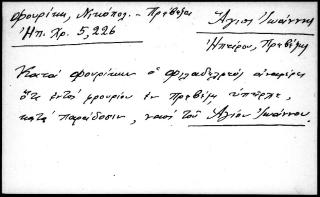 Φουρίκη, Νικόπολ. - Πρέβεζα
Ἠπ. Χρ. 5,226
Ἅγιος Ἰωάννης
Ἠπείρου, Πρεβέζης
Κατά Φουρίκην ὁ Φιλαδελφεύς ἀναφέρει
ὅτι ἐντός φρουρίου ἐν Πρεβέζῃ ὑπῆρχε,
κατά παράδοσιν, ναός τοῦ Ἁγίου Ἰωάννου.